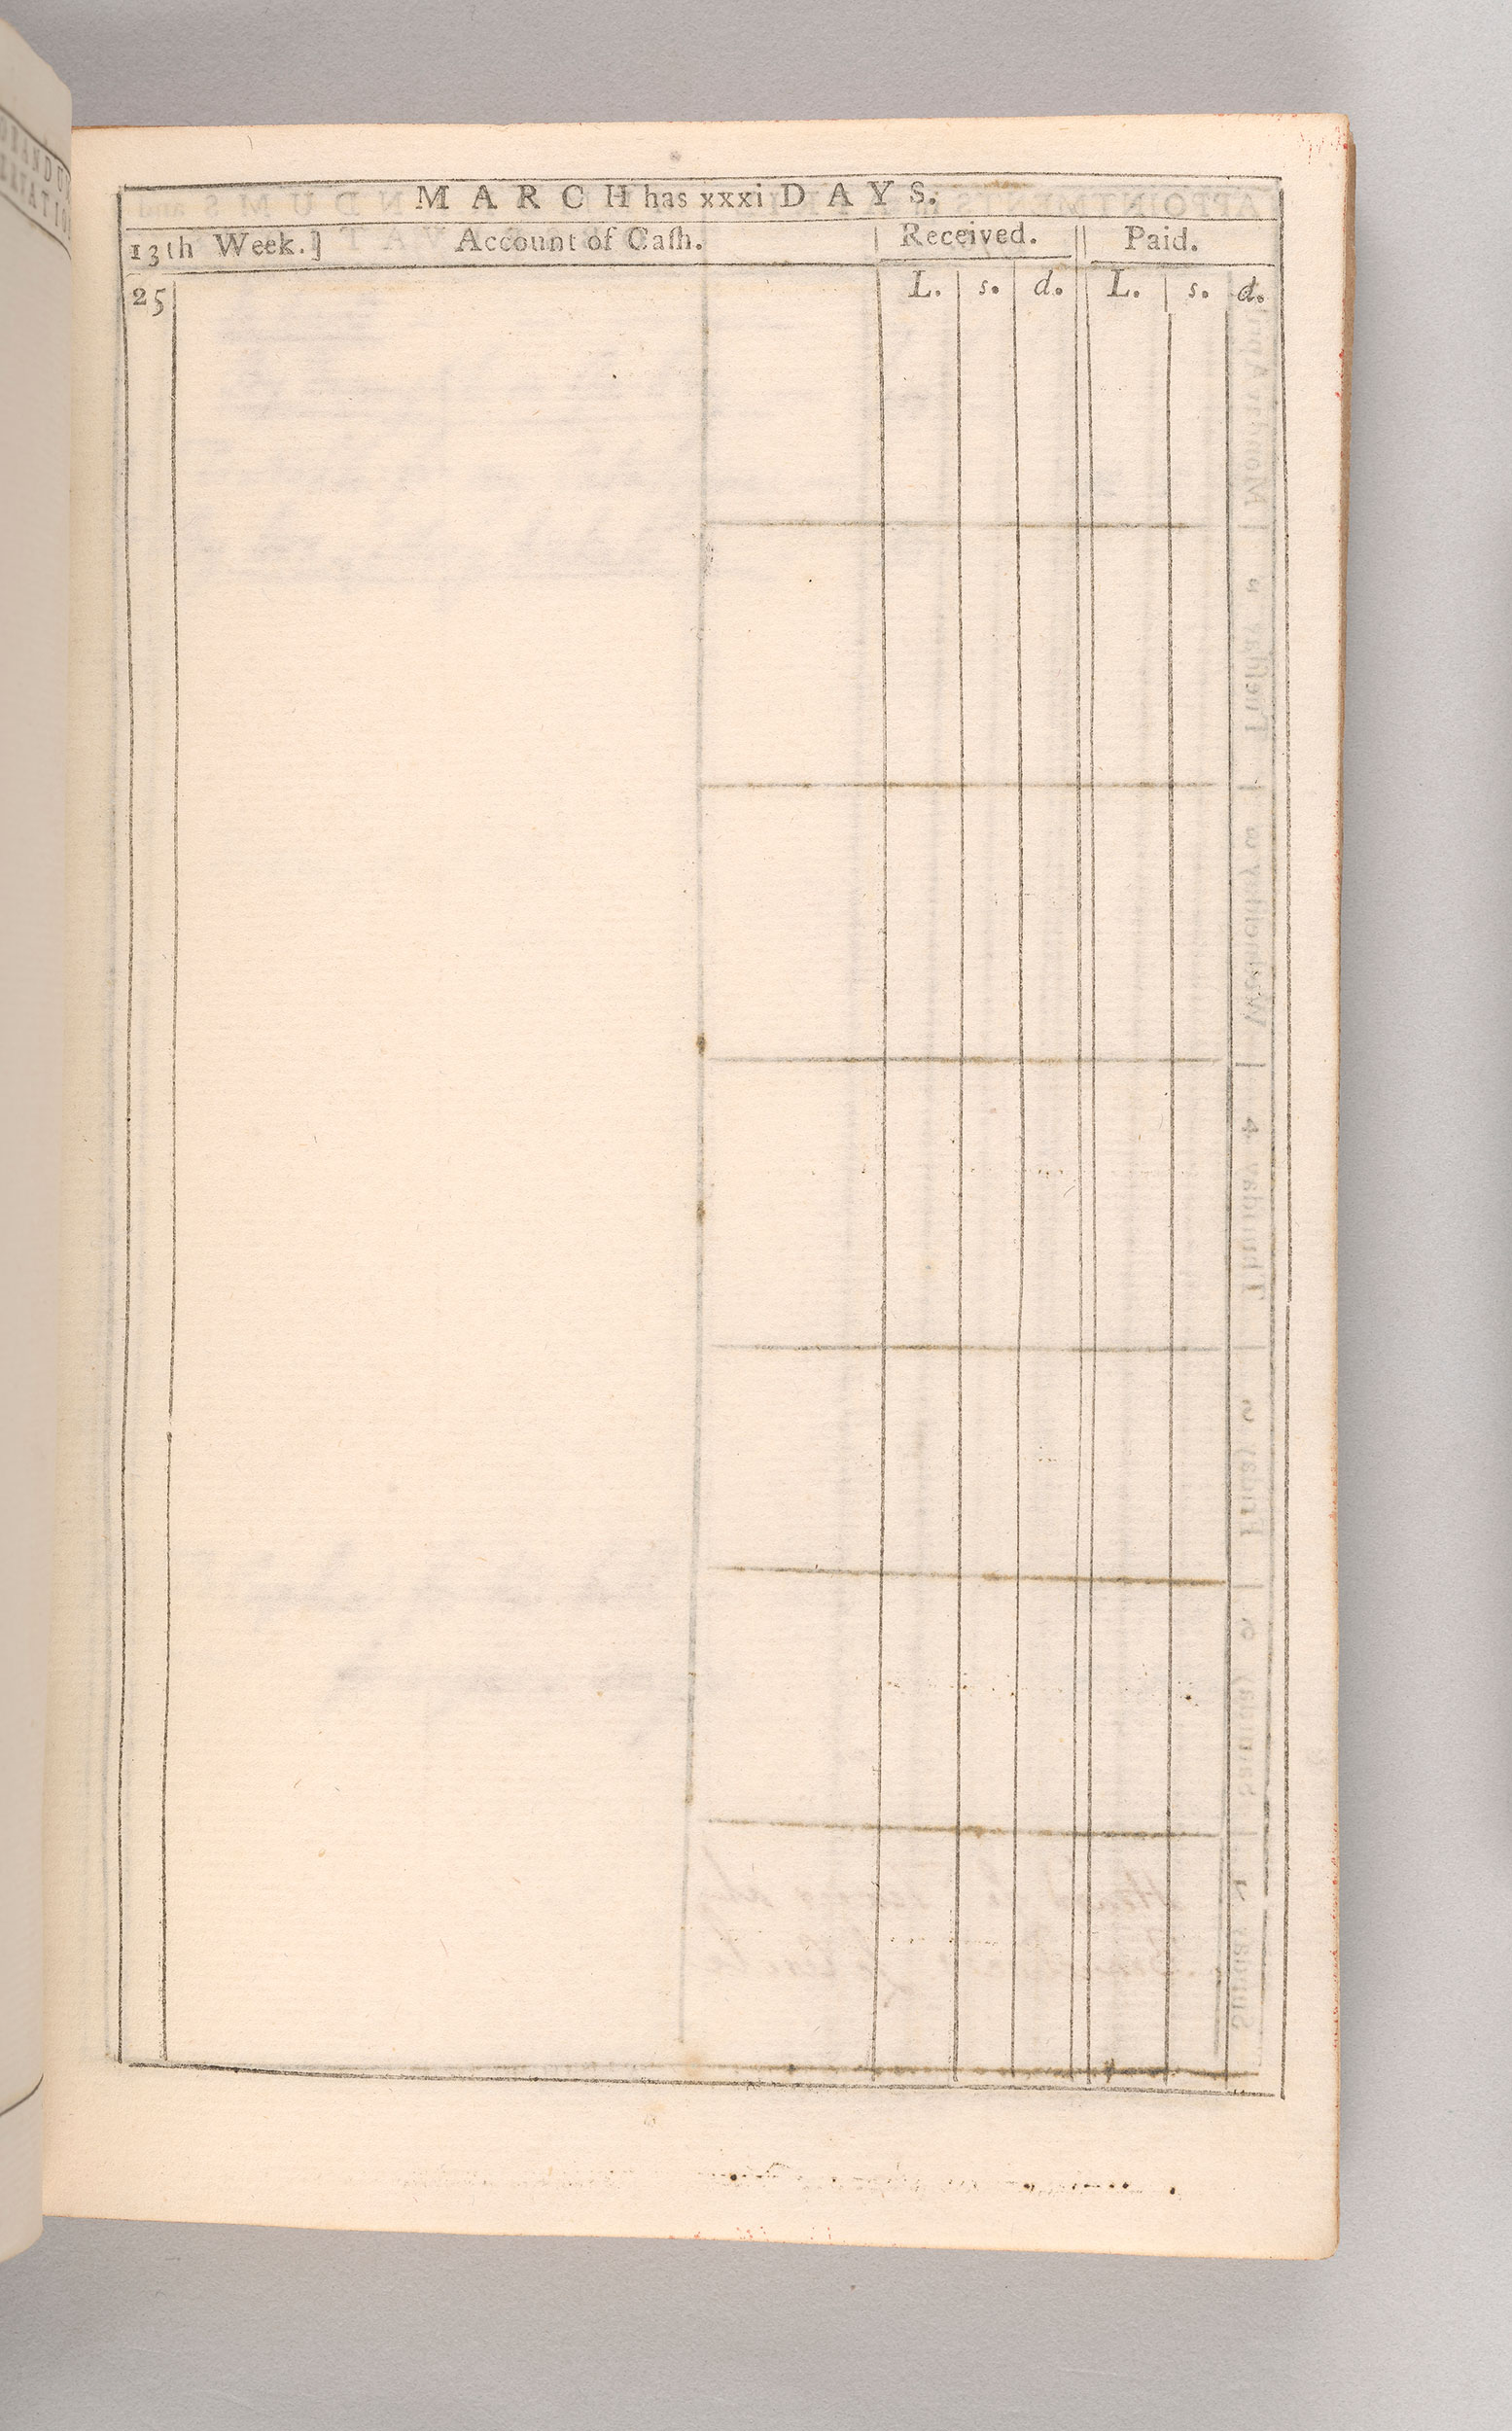 MARCH has xxxi DAYS.
13th Week.] Account of Caſh. Received. Paid.
25 L. s. d. L. s. d.